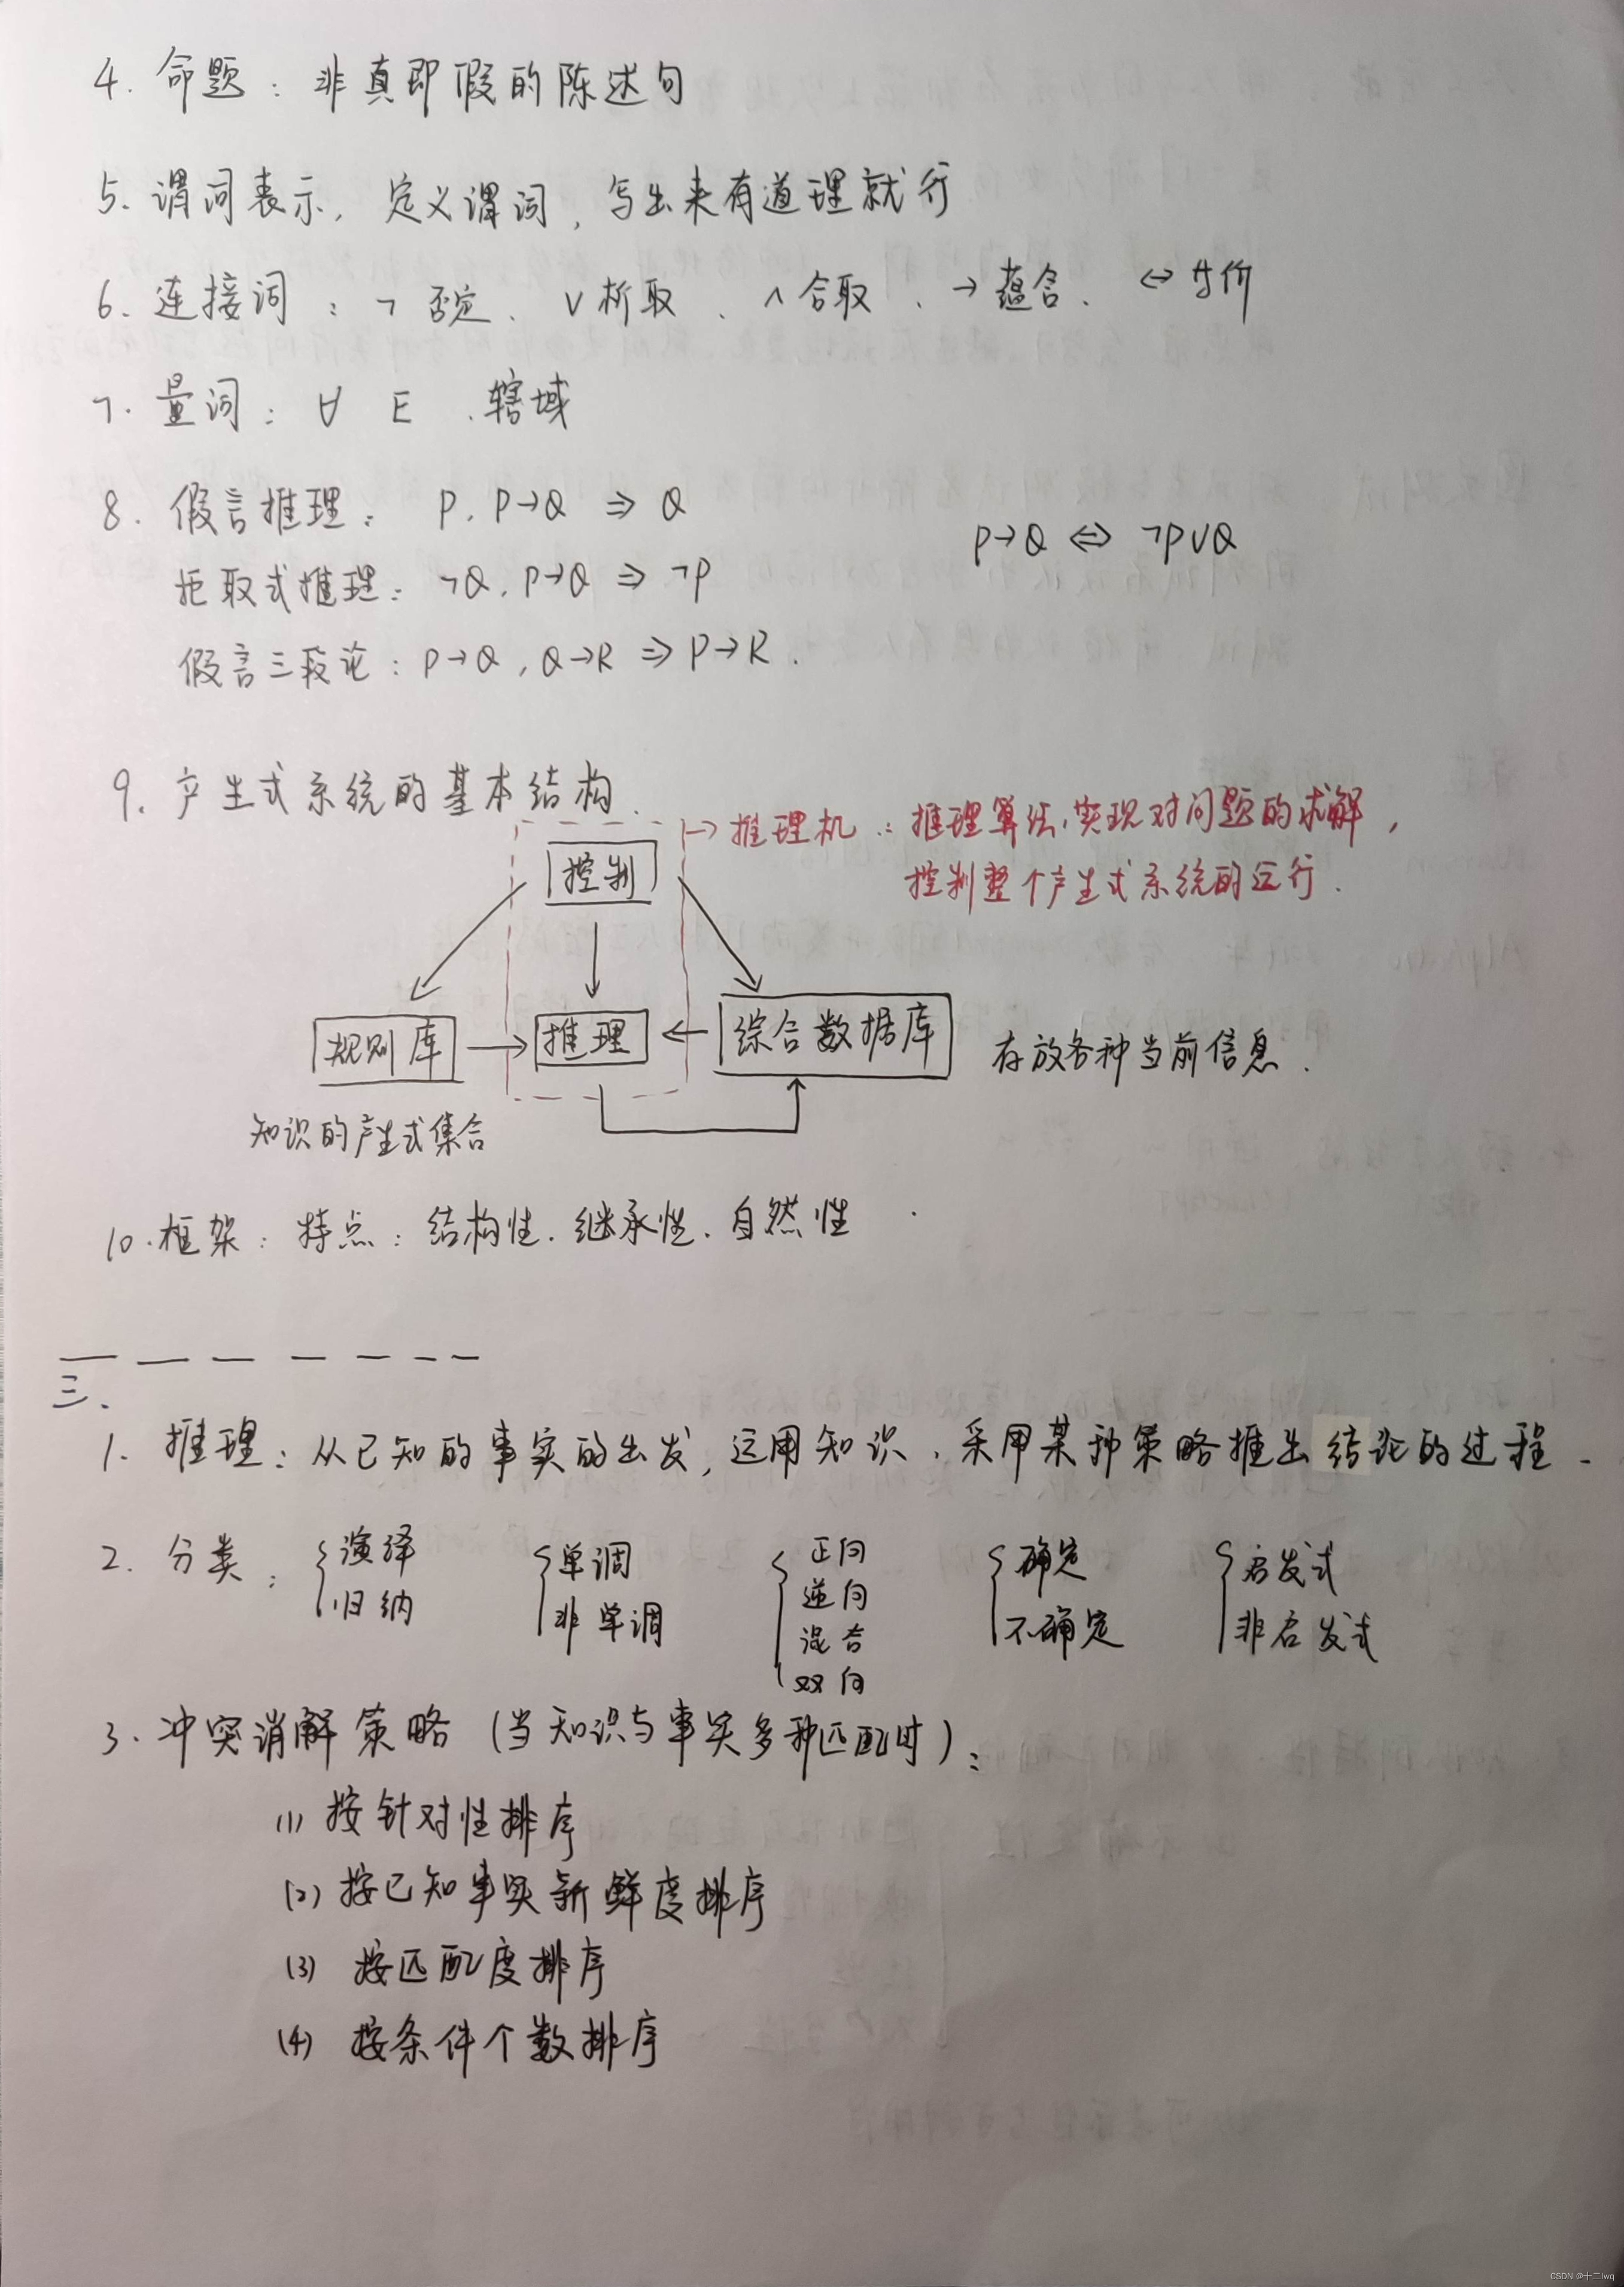 4. 命题：非真即假的陈述句
5. 谓词表示，定义谓词，写出来有道理就行
6. 连接词：¬ 否定、∨析取、∧合取、→蕴含、⇔等价
7. 量词：∀ E、辖域
8. 假言推理：P，P→Q ⇒ Q
P→Q ⇔ ¬P∨Q
拒取式推理：¬Q，P→Q ⇒ ¬P
假言三段论：P→Q，Q→R ⇒ P→R.
9. 产生式系统的基本结构.
→推理机：推理算法，实现对问题的求解，
控制整个产生式系统的运行.
控制
规则库
推理
综合数据库
存放各种当前信息.
知识的产生式集合
10. 框架：特点：结构性.继承性.自然性
三.
1. 推理：从已知的事实的出发，运用知识，采用某种策略推出结论的过程.
2. 分类：{演绎 {单调 {正向 {确定 {启发式
归纳 非单调 逆向 不确定 非启发式
混合
双向
3. 冲突消解策略（当知识与事实多种匹配时）：
(1) 按针对性排序
(2) 按已知事实新鲜度排序
(3) 按匹配度排序
(4) 按条件个数排序
CSDN @十二lwq